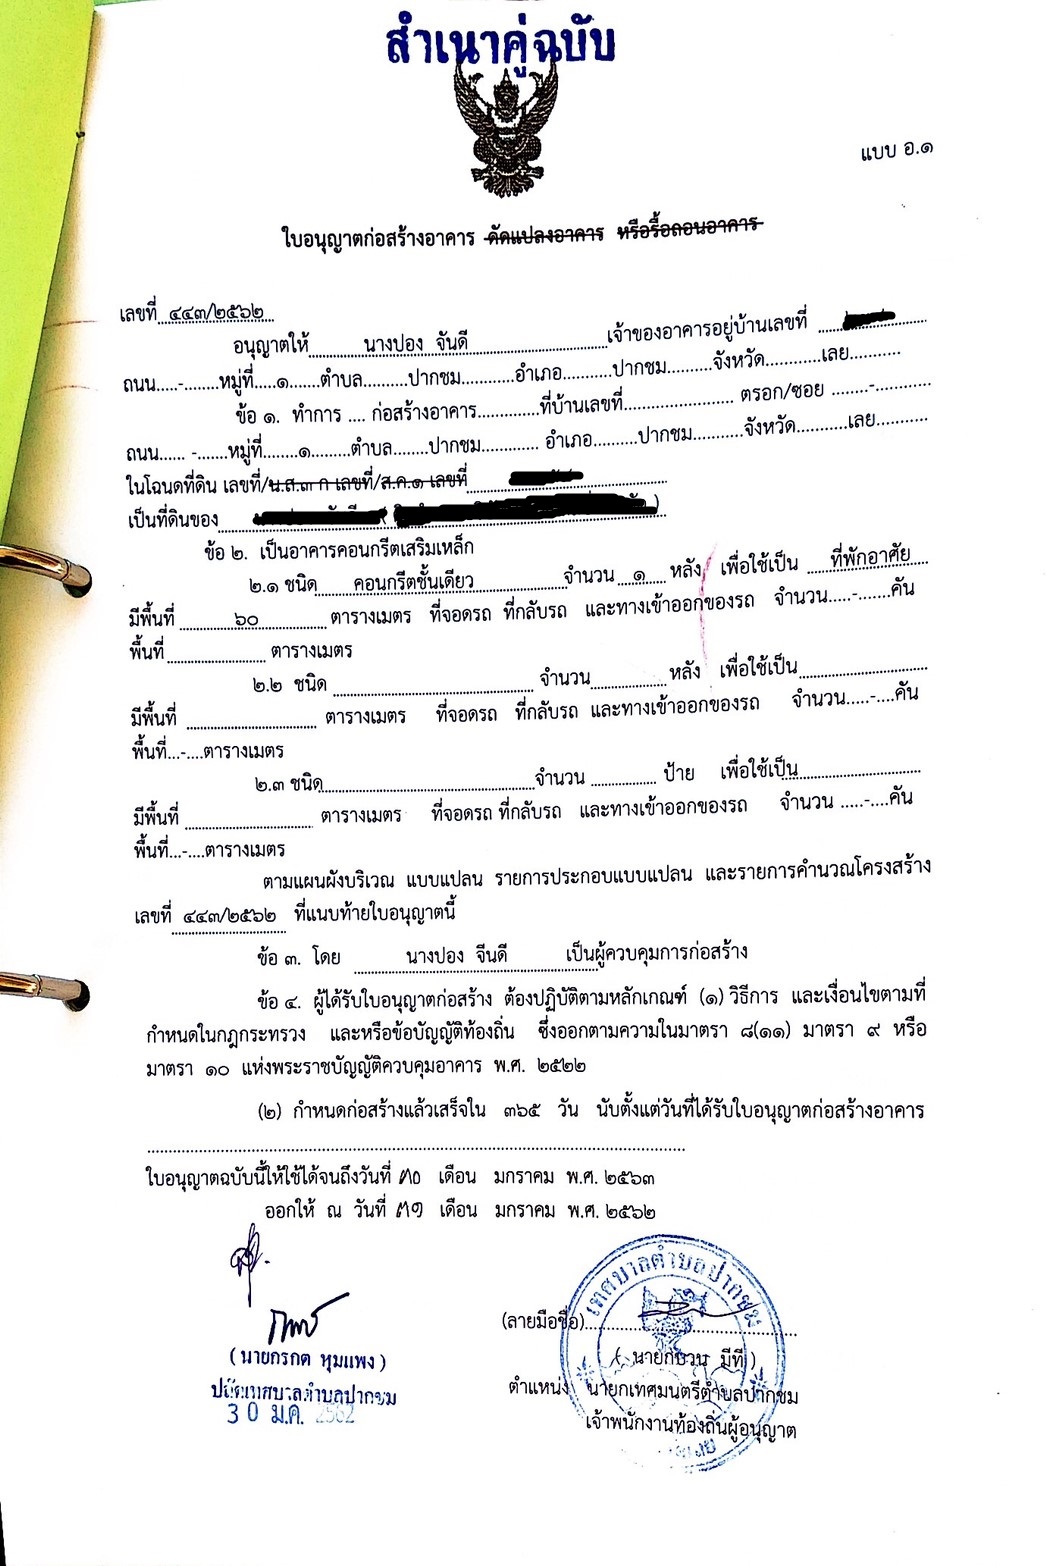 สำเนาคู่ฉบับ
แบบ อ.๑
ใบอนุญาตก่อสร้างอาคาร ดัดแปลงอาคาร หรือรื้อถอนอาคาร
เลขที่ ๔๔๓/๒๕๖๒
อนุญาตให้ นางปอง จันดี เจ้าของอาคารอยู่บ้านเลขที่
ถนน.....-.......หมู่ที่.....๑.......ตำบล..........ปากชม............อำเภอ..........ปากชม..........จังหวัด............เลย..........
ข้อ ๑. ทำการ .... ก่อสร้างอาคาร.............ที่บ้านเลขที่........................ ตรอก/ซอย ........-............
ถนน...... -.......หมู่ที่........๑.........ตำบล.......ปากชม............. อำเภอ.........ปากชม...........จังหวัด...........เลย...........
ในโฉนดที่ดิน เลขที่/น.ส.๓ ก เลขที่/ส.ค.๑ เลขที่
เป็นที่ดินของ
ข้อ ๒. เป็นอาคารคอนกรีตเสริมเหล็ก
๒.๑ ชนิด คอนกรีตชั้นเดียว จำนวน ๑ หลัง เพื่อใช้เป็น ที่พักอาศัย
มีพื้นที่ ๖๐ ตารางเมตร ที่จอดรถ ที่กลับรถ และทางเข้าออกของรถ จำนวน.....-.......คัน
พื้นที่ ตารางเมตร
๒.๒ ชนิด จำนวน หลัง เพื่อใช้เป็น
มีพื้นที่ ตารางเมตร ที่จอดรถ ที่กลับรถ และทางเข้าออกของรถ จำนวน.....-....คัน
พื้นที่...-....ตารางเมตร
๒.๓ ชนิด จำนวน ป้าย เพื่อใช้เป็น
มีพื้นที่ ตารางเมตร ที่จอดรถ ที่กลับรถ และทางเข้าออกของรถ จำนวน .....-....คัน
พื้นที่...-....ตารางเมตร
ตามแผนผังบริเวณ แบบแปลน รายการประกอบแบบแปลน และรายการคำนวณโครงสร้าง
เลขที่ ๔๔๓/๒๕๖๒ ที่แนบท้ายใบอนุญาตนี้
ข้อ ๓. โดย นางปอง จีนดี เป็นผู้ควบคุมการก่อสร้าง
ข้อ ๔. ผู้ได้รับใบอนุญาตก่อสร้าง ต้องปฏิบัติตามหลักเกณฑ์ (๑) วิธีการ และเงื่อนไขตามที่
กำหนดในกฎกระทรวง และหรือข้อบัญญัติท้องถิ่น ซึ่งออกตามความในมาตรา ๘(๑๑) มาตรา ๙ หรือ
มาตรา ๑๐ แห่งพระราชบัญญัติควบคุมอาคาร พ.ศ. ๒๕๒๒
(๒) กำหนดก่อสร้างแล้วเสร็จใน ๓๖๕ วัน นับตั้งแต่วันที่ได้รับใบอนุญาตก่อสร้างอาคาร
ใบอนุญาตฉบับนี้ให้ใช้ได้จนถึงวันที่ ๓๐ เดือน มกราคม พ.ศ. ๒๕๖๓
ออกให้ ณ วันที่ ๓๑ เดือน มกราคม พ.ศ. ๒๕๖๒
เทศบาลตำบลปากชม
(ลายมือชื่อ)
(นายกรกต หุมแพง)
ปลัดเทศบาลตำบลปากชม
30 ม.ค. 2562
มีที )
ตำแหน่ง นายกเทศมนตรีตำบลปากชม
เจ้าพนักงานท้องถิ่นผู้อนุญาต